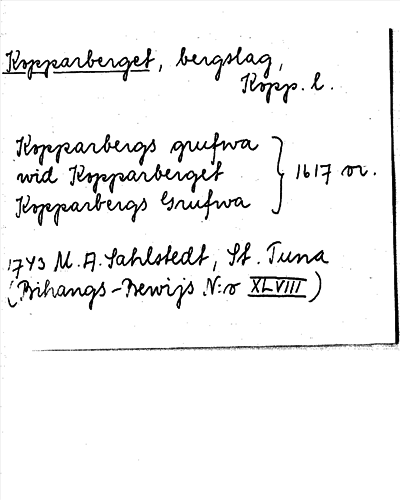 Kopparberget, bergslag,
Kopp. l.
Kopparbergs grufwa
wid Kopparberget
Kopparbergs Grufwa
1617 or.
1743 M. A. Sahlstedt, St. Tuna
(Bihangs-Bewijs N:o XLVIII)